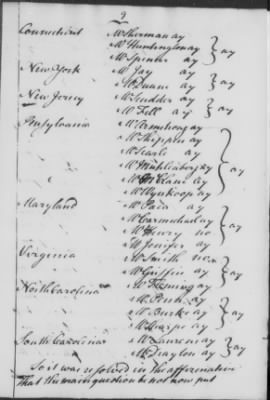 9
Connecticut Mr Sherman ay
Mr Huntington ay } ay
Mr Spencer ay
New York Mr Jay ay
Mr Duane ay } ay
New Jersey Mr Scudder ay
Mr Fell ay } ay
Pensylvania Mr Armstrong ay
Mr Shippen ay
Mr Searle ay
Mr Muhlenberg ay } ay
Mr McLane ay
Mr Wynkoop ay
Maryland Mr Paca ay
Mr Carmichael ay
Mr Henry no } ay
Mr Jenifer ay
Virginia Mr Smith no
Mr Griffin ay } ay
Mr Fleming ay
North Carolina Mr Penn ay
Mr Burke ay } ay
Mr Sharpe ay
South Carolina Mr Laurens ay
Mr Drayton ay } ay
So it was resolved in the affirmative
That the main question be not now put